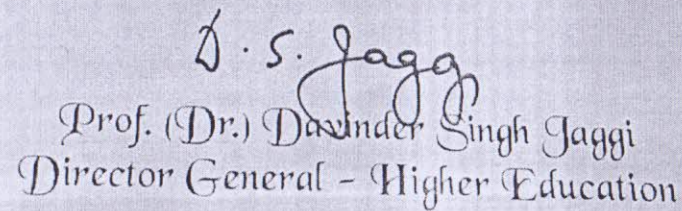 D. S. Jagg
Prof. (Dr.) Davinder Singh Jaggi
Director General - Higher Education